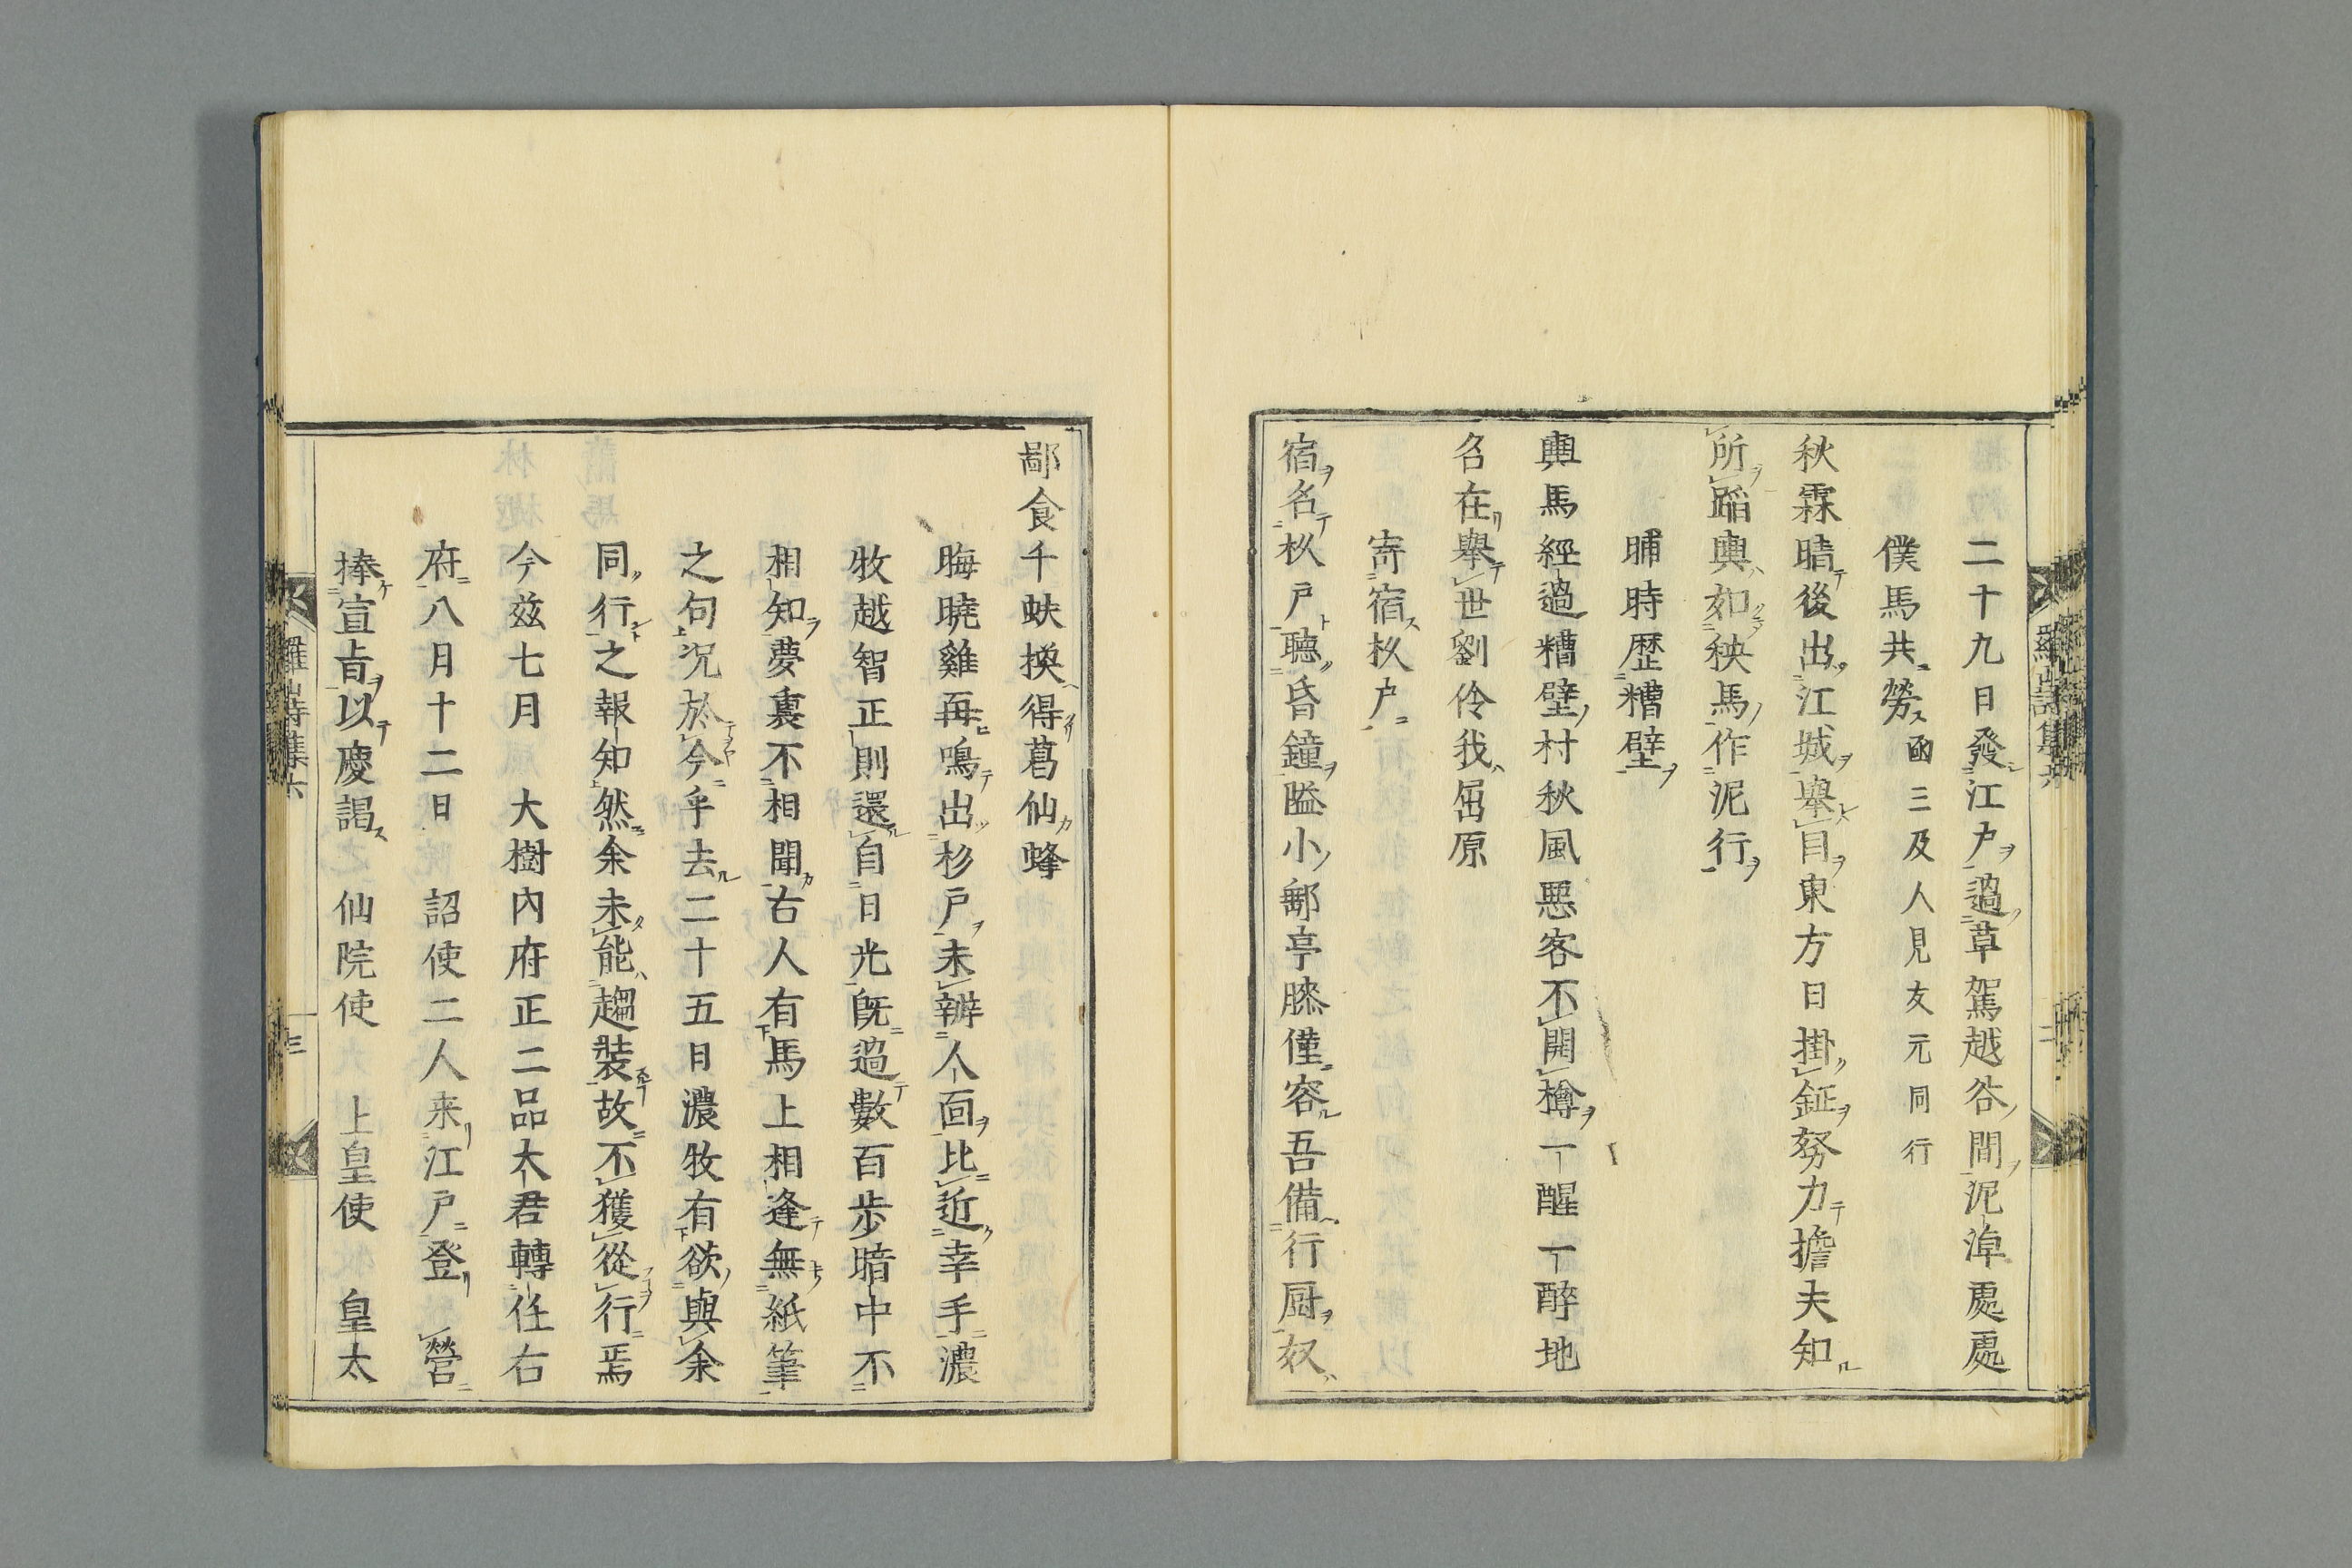 二十九日發江戶過草駕越谷間泥淖處處
僕馬共勞函三及人見友元同行
秋霖晴後出江城舉目東方日掛鉦努力擔夫知
所蹈輿如秧馬作泥行
晡時歴糟壁
輿馬經過糟壁村秋風悪客不開樽一醒一醉地
名在舉世劉伶我屈原
寄宿杦戶
宿名杦戶聽昏鐘隘小郵亭膝僅容吾備行厨奴
鄙食千蚨換得葛仙蜂
晦曉雞再鳴出杉戶未辨人面比近幸手濃
牧越智正則還自日光既過數百歩暗中不
相知夢裏不相聞古人有馬上相逢無紙筆
之句况於今乎去二十五日濃牧有欲與余
同行之報知然余未能趨裝故不獲從行焉
今兹七月　大樹內府正二品大君轉任右
府八月十二日　詔使二人来江戶登　營
捧宣旨以慶謁　仙院使　上皇使　皇太
羅山詩集六
三